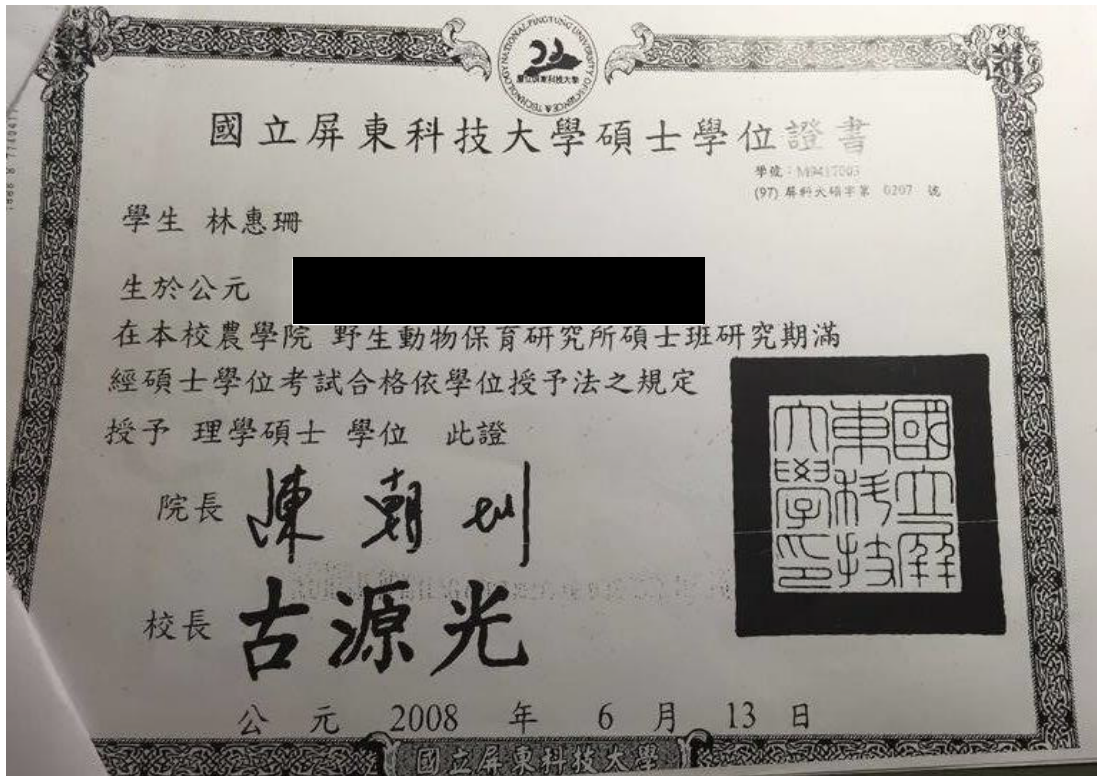 NATIONAL PINGTUNG UNIVERSITY OF SCIENCE & TECHNOLOGY
國立屏東科技大學
國立屏東科技大學碩士學位證書
學號：M9417003
(97) 屏科大碩字第 0207 號
學生 林惠珊
生於公元
在本校農學院 野生動物保育研究所碩士班研究期滿
經碩士學位考試合格依學位授予法之規定
授予 理學碩士 學位 此證
院長 陳朝圳
校長 古源光
國立屏東科技大學印
公元 2008 年 6 月 13 日
國立屏東科技大學